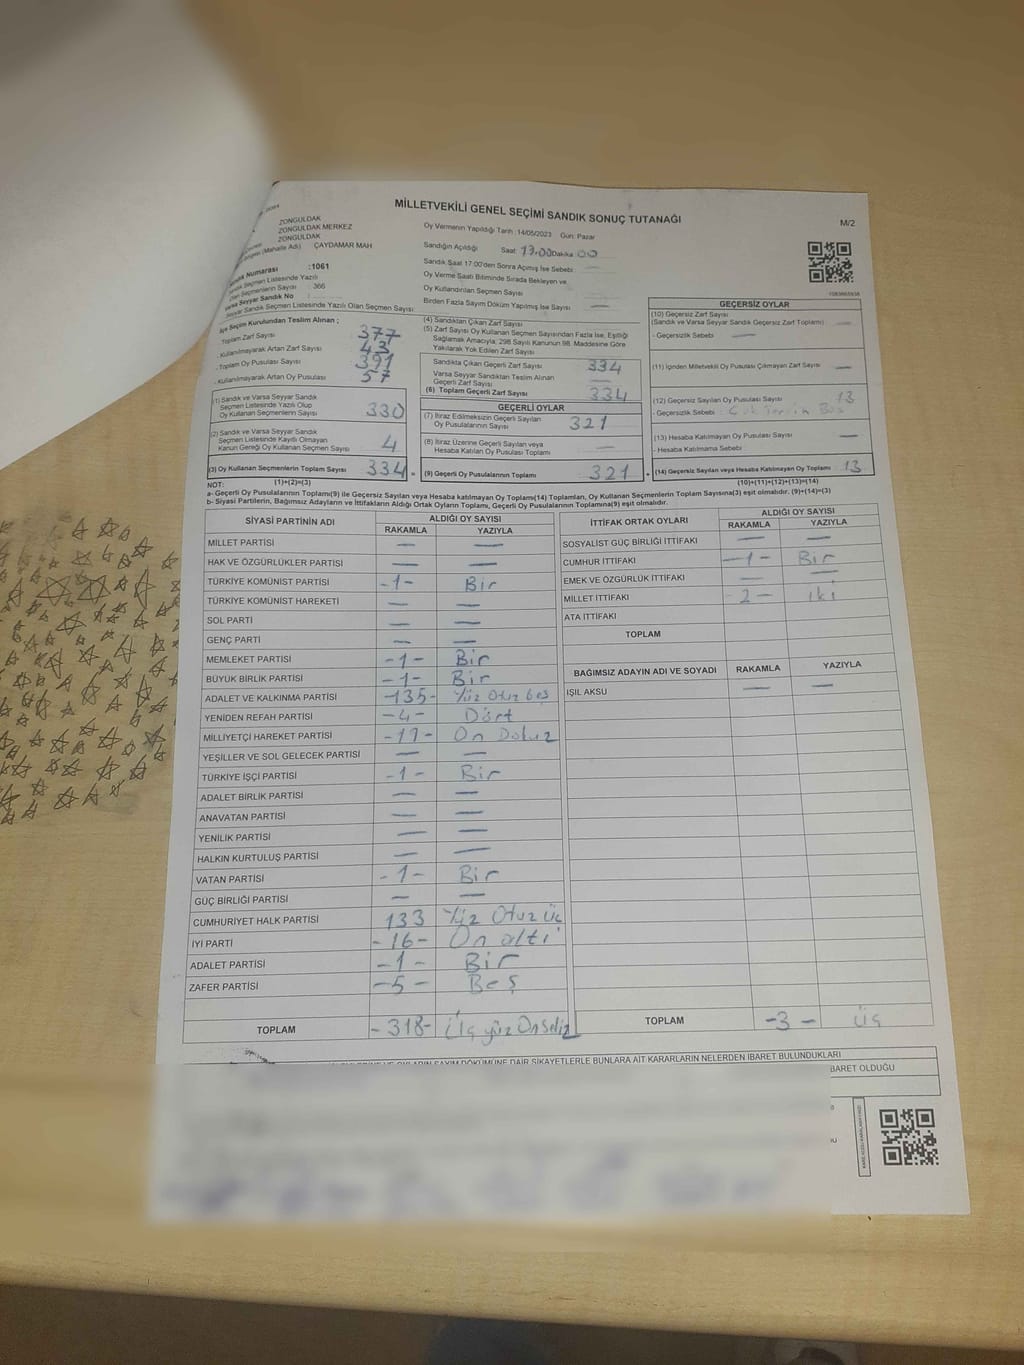 MİLLETVEKİLİ GENEL SEÇİMİ SANDIK SONUÇ TUTANAĞI
M/2
ZONGULDAK
ZONGULDAK MERKEZ
ZONGULDAK
(Mahalle Adı) ÇAYDAMAR MAH
Numarası :1061
Seçmen Listesinde Yazılı
Olan Seçmenlerin Sayısı 366
Varsa Seyyar Sandık No
Seyyar Sandık Seçmen Listesinde Yazılı Olan Seçmen Sayısı
Oy Vermenin Yapıldığı Tarih : 14/05/2023 Gün: Pazar
Sandığın Açıldığı Saat: Dakika 00
Sandık Saat 17.00'den Sonra Açımış İse Sebebi: —
Oy Verme Saati Bitiminde Sırada Bekleyen ve
Oy Kullandırılan Seçmen Sayısı
Birden Fazla Sayım Döküm Yapılmış İse Sayısı —
İlçe Seçim Kurulundan Teslim Alınan ;
- Toplam Zarf Sayısı 377
- Kullanılmayarak Artan Zarf Sayısı 43
- Toplam Oy Pusulası Sayısı 391
- Kullanılmayarak Artan Oy Pusulası 57
(1) Sandık ve Varsa Seyyar Sandık
Seçmen Listesinde Yazılı Olup
Oy Kullanan Seçmenlerin Sayısı 330
(2) Sandık ve Varsa Seyyar Sandık
Seçmen Listesinde Kayıtlı Olmayan
Kanun Gereği Oy Kullanan Seçmen Sayısı 4
(3) Oy Kullanan Seçmenlerin Toplam Sayısı 334
(1)+(2)=(3)
(4) Sandıktan Çıkan Zarf Sayısı
(5) Zarf Sayısı Oy Kullanan Seçmen Sayısından Fazla İse, Eşitliği
Sağlamak Amacıyla, 298 Sayılı Kanunun 98. Maddesine Göre
Yakılarak Yok Edilen Zarf Sayısı
Sandıkta Çıkan Geçerli Zarf Sayısı 334
Varsa Seyyar Sandıktan Teslim Alınan
Geçerli Zarf Sayısı —
(6) Toplam Geçerli Zarf Sayısı 334
GEÇERLİ OYLAR
(7) İtiraz Edilmeksizin Geçerli Sayılan
Oy Pusulalarının Toplamı 321
(8) İtiraz Üzerine Geçerli Sayılan veya
Hesaba Katılan Oy Pusulası Toplamı —
(9) Geçerli Oy Pusulalarının Toplamı 321
GEÇERSİZ OYLAR
(10) Geçersiz Zarf Sayısı
(Sandık ve Varsa Seyyar Sandık Geçersiz Zarf Toplamı) —
- Geçersizlik Sebebi: —
(11) İçinden Milletvekili Oy Pusulası Çıkmayan Zarf Sayısı —
(12) Geçersiz Sayılan Oy Pusulası Sayısı 13
- Geçersizlik Sebebi :
(13) Hesaba Katılmayan Oy Pusulası Sayısı —
- Hesaba Katılmama Sebebi
(14) Geçersiz Sayılan veya Hesaba Katılmayan Oy Toplamı 13
(10)+(11)+(12)+(13)=(14)
NOT:
a- Geçerli Oy Pusulalarının Toplamı(9) ile Geçersiz Sayılan veya Hesaba katılmayan Oy Toplamı(14) Toplamları, Oy Kullanan Seçmenlerin Toplam Sayısına(3) eşit olmalıdır. (9)+(14)=(3)
b- Siyasi Partilerin, Bağımsız Adayların ve İttifakların Aldığı Ortak Oyların Toplamı, Geçerli Oy Pusulalarının Toplamına(9) eşit olmalıdır.
SİYASİ PARTİNİN ADI ALDIĞI OY SAYISI
RAKAMLA YAZIYLA
MİLLET PARTİSİ — —
HAK VE ÖZGÜRLÜKLER PARTİSİ — —
TÜRKİYE KOMÜNİST PARTİSİ -1- Bir
TÜRKİYE KOMÜNİST HAREKETİ — —
SOL PARTİ — —
GENÇ PARTİ — —
MEMLEKET PARTİSİ -1- Bir
BÜYÜK BİRLİK PARTİSİ -1- Bir
ADALET VE KALKINMA PARTİSİ -135- Yüz Otuz beş
YENİDEN REFAH PARTİSİ -4- Dört
MİLLİYETÇİ HAREKET PARTİSİ -19- On Dokuz
YEŞİLLER VE SOL GELECEK PARTİSİ — —
TÜRKİYE İŞÇİ PARTİSİ -1- Bir
ADALET BİRLİK PARTİSİ — —
ANAVATAN PARTİSİ — —
YENİLİK PARTİSİ — —
HALKIN KURTULUŞ PARTİSİ — —
VATAN PARTİSİ -1- Bir
GÜÇ BİRLİĞİ PARTİSİ — —
CUMHURİYET HALK PARTİSİ 133 Yüz Otuz Üç
İYİ PARTİ -16- On altı
ADALET PARTİSİ -1- Bir
ZAFER PARTİSİ -5- Beş
TOPLAM -318- Üç yüz Onsekiz
İTTİFAK ORTAK OYLARI ALDIĞI OY SAYISI
RAKAMLA YAZIYLA
SOSYALİST GÜÇ BİRLİĞİ İTTİFAKI — —
CUMHUR İTTİFAKI -1- Bir
EMEK VE ÖZGÜRLÜK İTTİFAKI — —
MİLLET İTTİFAKI -2- iki
ATA İTTİFAKI
TOPLAM
BAĞIMSIZ ADAYIN ADI VE SOYADI RAKAMLA YAZIYLA
IŞIL AKSU — —
TOPLAM -3- Üç
OYLARIN SAYIM DÖKÜMÜNE DAİR ŞİKAYETLERLE BUNLARA AİT KARARLARIN NELERDEN İBARET BULUNDUKLARI
BARET OLDUĞU